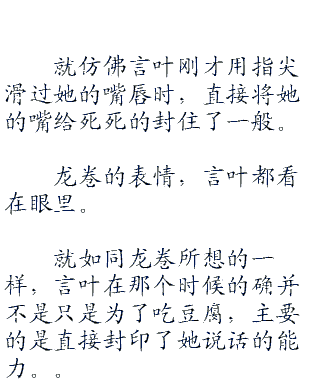 就仿佛言叶刚才用指尖
滑过她的嘴唇时，直接将她
的嘴给死死的封住了一般。
龙卷的表情，言叶都看
在眼里。
就如同龙卷所想的一
样，言叶在那个时候的确并
不是只是为了吃豆腐，主要
的是直接封印了她说话的能
力。。